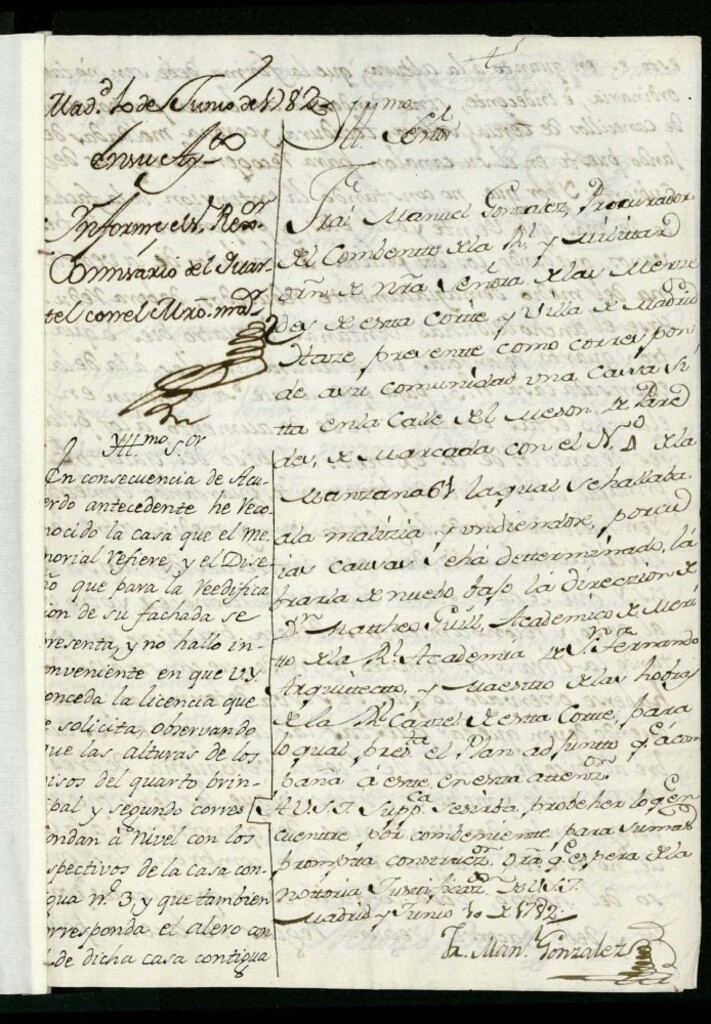 Mad.d 10 de Junio de 1782
En su Ay.to
Informe el S.r Rexor.
Comisario del Quar-
tel con el Mro. mor.
Yll.mo S.or
En consecuencia de Acu-
erdo antecedente he Reco-
nocido la casa que el Me-
morial refiere, y el Dise-
ño que para la Reedifica
ion de su fachada se
presenta, y no hallo in-
conveniente en que V.Y.
conceda la licencia que
se solicita, observando
que las alturas de los
pisos del quarto prin-
cipal y segundo corres
pondan à nivel con los
respectivos de la casa con-
tigua n.º 3, y que tambien
corresponda el alero con
el de dicha casa contigua
Yll.mo Señor
Frai Manuel Gonzalez, Procurador
del Combento de la R.l y Militar
orn. de nra Señora de las Merce
des de esta Corte y Villa de Madrid
Haze presente como corres pon
de a su comunidad una Cassa si
tta en la Calle del Meson de Pare
des, de Marcada con el N.º 4 de la
Manzana 61 la qual se hallaba
ala malizia y undiendose, por cu
ias causas se há determinado, la
brarla de nuebo, bajo la direczion de
D.n Mattheo Guill, Academico de Meri
to de la R.l Academia de S.n Fernando
Arquitecto, y Maestro de las hobras
de la R.l Cárzel de esta Corte, para
lo qual pres.ta el Plan adjunto q.e acom
paña á este, en esta attenz.on
A V.S.I. Supp.ca se sirba probeher lo q.e en
cuentre, por combeniente, para su mas
prompta construcz.on Gra. q.e espera de la
nottoria Justificaz.on de V.S.I.
Madrid y Junio 10 de 1782
Fr. Man.l Gonzalez